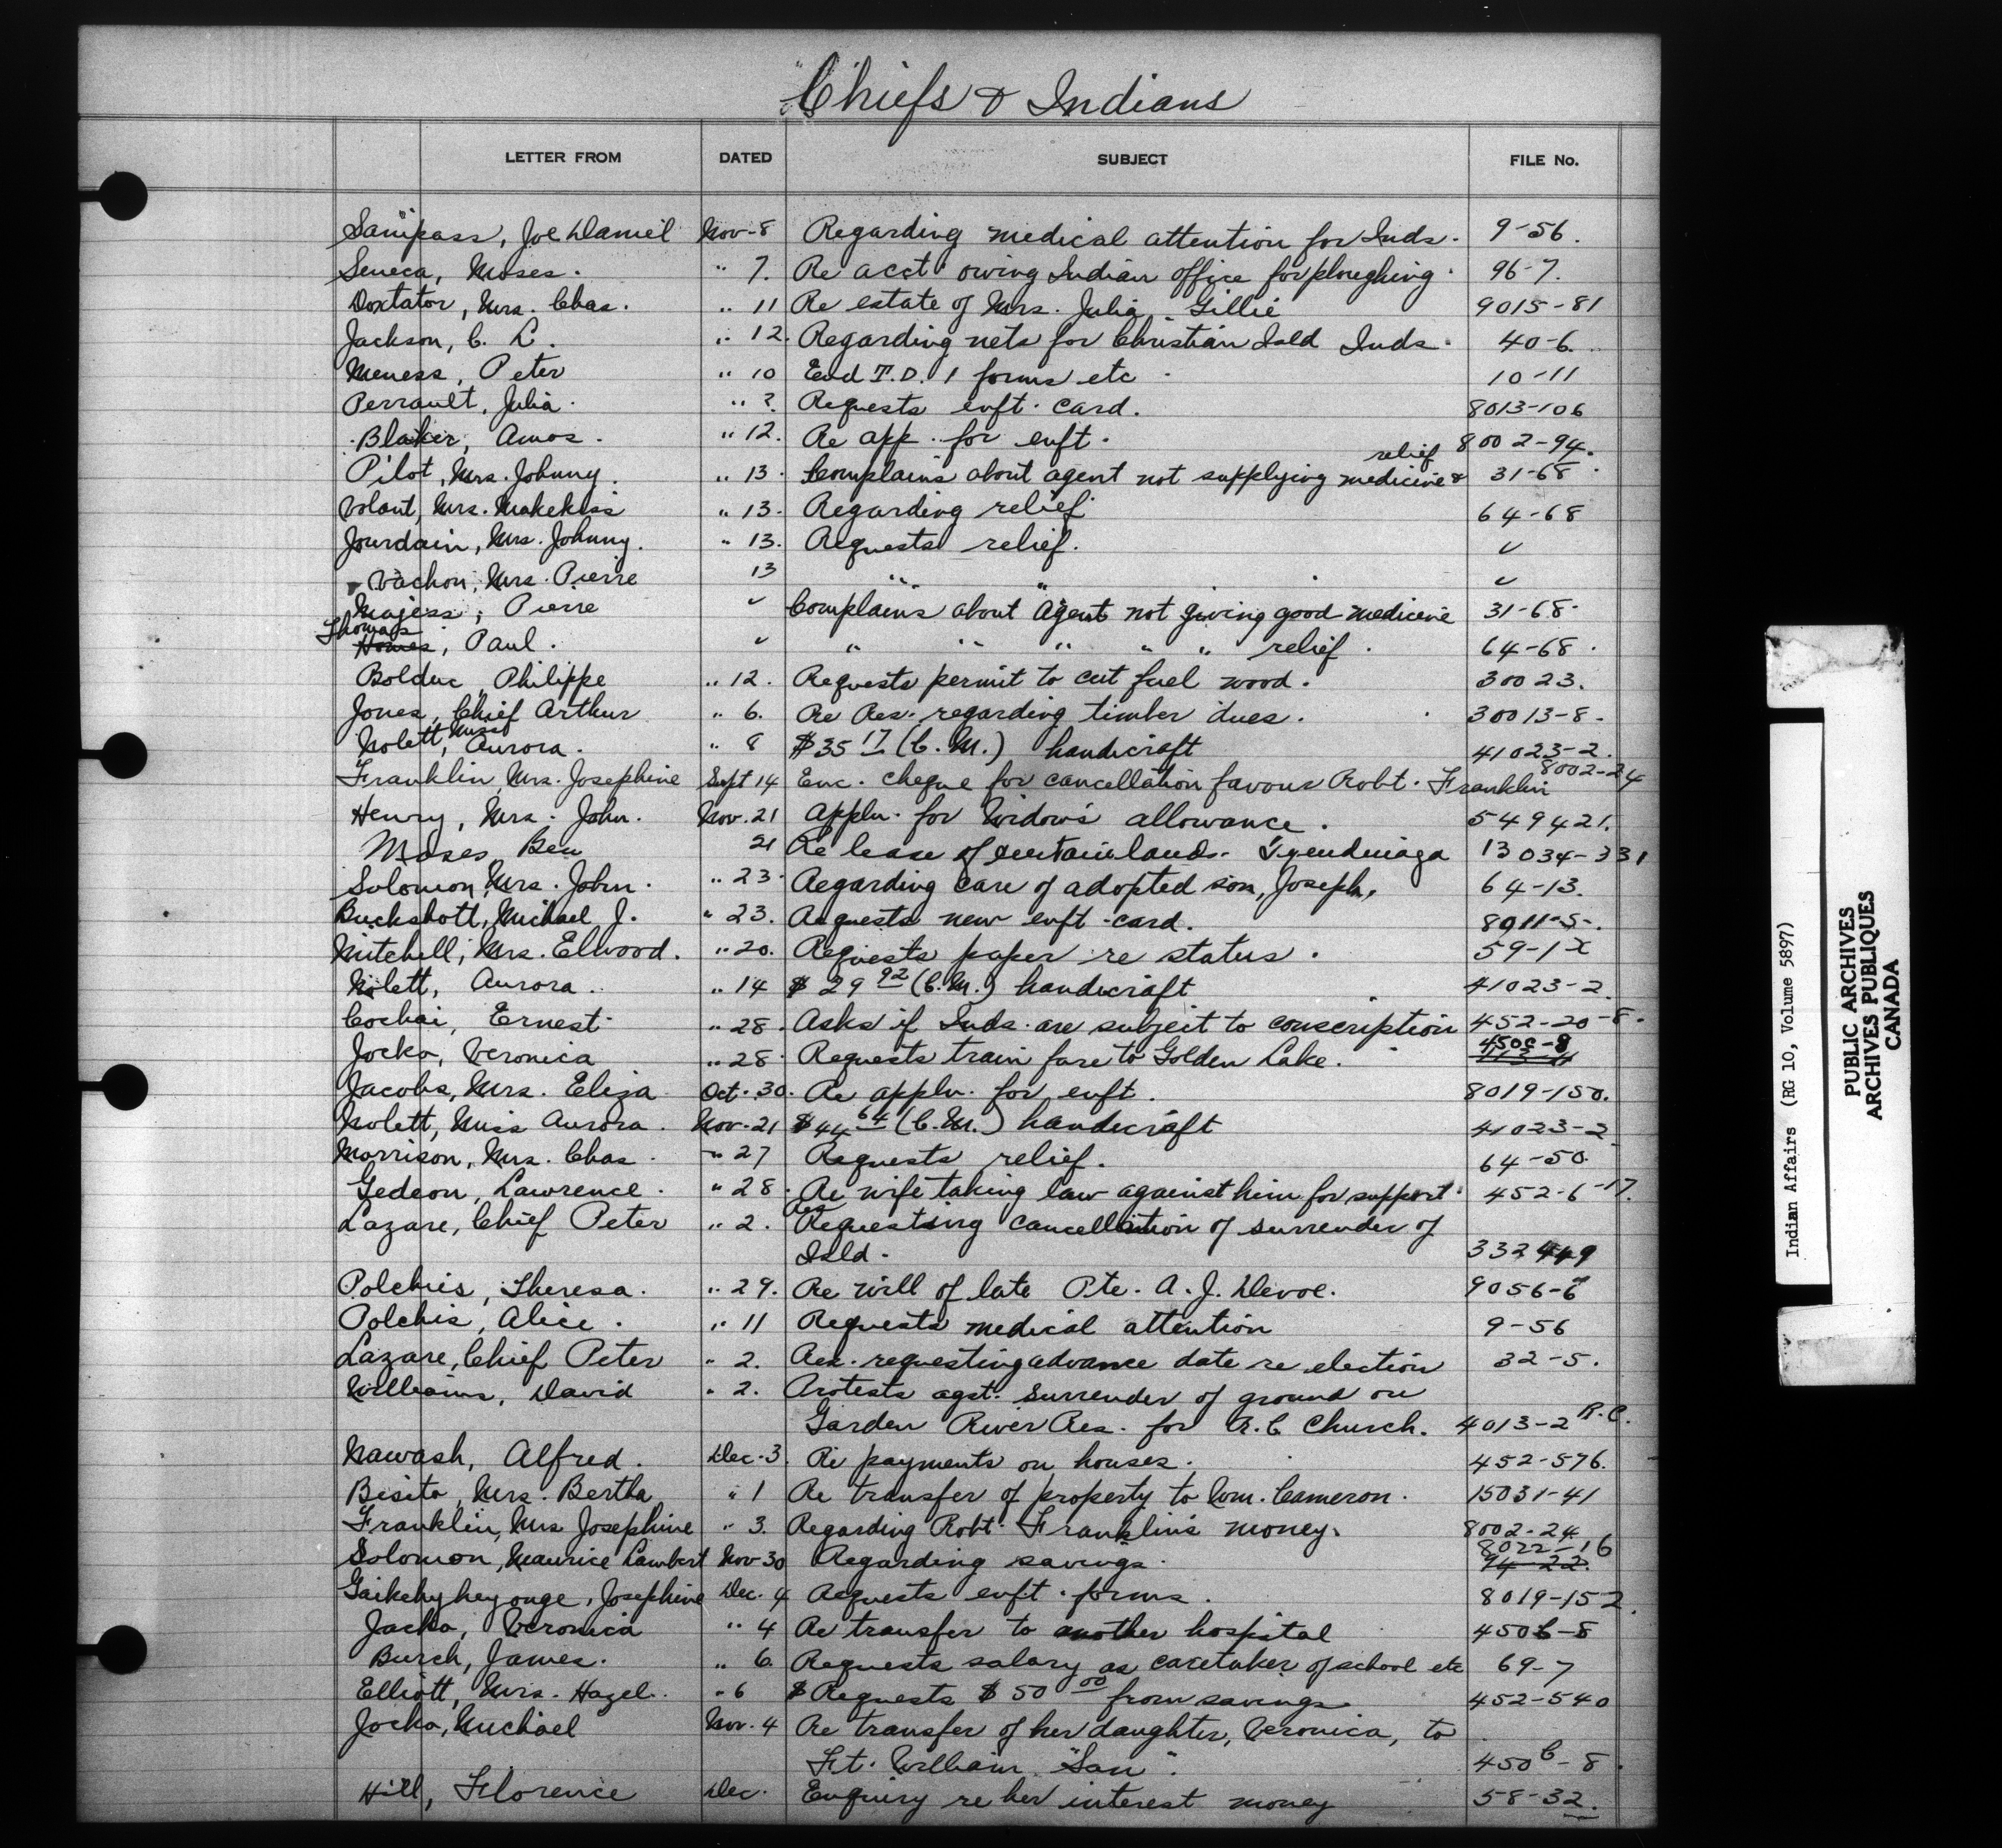 Chiefs & Indians
LETTER FROM DATED SUBJECT FILE No.
Sanipass, Joe Daniel Nov-8 Regarding medical attention for Inds. 9-56.
Seneca, Moses. " 7. Re acct. owing Indian office for ploughing. 96-7.
Doxtator, Mrs. Chas. " 11 Re estate of Mrs. Julia Gillie 9015-81
Jackson, C. L. " 12. Regarding nets for Christian Isld Inds. 40-6.
Meness, Peter " 10 Encl T.D. 1 forms etc. 10-11
Perrault, Julia. " ?. Requests enft. card. 8013-106
Blaker, Amos. " 12. Re app. for enft. 8002-94.
relief
Pilot, Mrs. Johnny. " 13. Complains about agent not supplying medicine & 31-68.
Volant, Mrs. Makekiss " 13. Regarding relief 64-68
Jourdain, Mrs. Johnny. " 13. Requests relief. ✓
Vachon, Mrs. Pierre 13 " " ✓
Majess, Pierre ✓ Complains about Agent not giving good medicine 31-68.
Thomas
Homes, Paul. ✓ " " " " " relief. 64-68.
Bolduc, Philippe " 12. Requests permit to cut fuel wood. 30023.
Jones, Chief Arthur " 6. Re Res. regarding timber dues. 30013-8-
Miss
Nolett, Aurora. " 8 $35 17 (C.M.) handicraft 41023-2.
8002-24
Franklin, Mrs. Josephine Sept 14 Enc. cheque for cancellation favour Robt. Franklin
Henry, Mrs. John. Nov. 21 Appln. for Widow's allowance. 549421.
Moses, Ben 21 Re lease of certain lands- Tyendinaga 13034-331
Solomon, Mrs. John. " 23. Regarding care of adopted son, Joseph, 64-13.
Buckshott, Michael J. " 23. Requests new enft-card. 8011-5-.
Mitchell, Mrs. Ellwood. " 20. Requests paper re status. 59-1x
Nolett, Aurora. " 14 $29 92 (C.M.) handicraft 41023-2
Cochai, Ernest " 28. Asks if Inds. are subject to conscription 452-20-8.
450C-8
Jocko, Veronica " 28. Requests train fare to Golden Lake.
Jacobs, Mrs. Eliza Oct. 30. Re appln. for enft. 8019-150.
Nolett, Miss Aurora. Nov. 21 $44 64 (C.M.) handicraft 41023-2
Morrison, Mrs. Chas. " 27 Requests relief. 64-50.
Gedeon, Lawrence. " 28. Re wife taking law against him for support. 452-6-17.
Res
Lazare, Chief Peter " 2. Requesting cancellation of surrender of
Isld. 332449
Polchies, Theresa. " 29. Re will of late Pte. A. J. Devoe. 9056-6
Polchis, Alice. " 11 Requests medical attention 9-56
Lazare, Chief Peter " 2. Res. requesting advance date re election 32-5.
Williams, David " 2. Protests agst. surrender of ground on
Garden River Res. for R.C. Church. 4013-2 R.C.
Nawash, Alfred. Dec. 3. Re payments on houses. 452-576.
Bisito, Mrs. Bertha " 1 Re transfer of property to Wm. Cameron. 15031-41
Franklin, Mrs Josephine " 3. Regarding Robt. Franklin's money. 8002-24
8022-16
Solomon, Maurice Lambert Nov 30 Regarding savings. 94-22.
Gaikehyheyonge, Josephine Dec. 4 Requests enft. forms. 8019-152.
Jacko, Veronica " 4 Re transfer to another hospital 450C-8
Burch, James. " 6. Requests salary as caretaker of school etc 69-7
Elliott, Mrs. Hazel. " 6 $Requests $50 00 from savings 452-540
Jocko, Michael Nov. 4 Re transfer of her daughter, Veronica, to
Ft. William "San". 450C-8.
Hill, Florence Dec. Enquiry re her interest money 58-32.
Indian Affairs (RG 10, Volume 5897)
PUBLIC ARCHIVES
ARCHIVES PUBLIQUES
CANADA